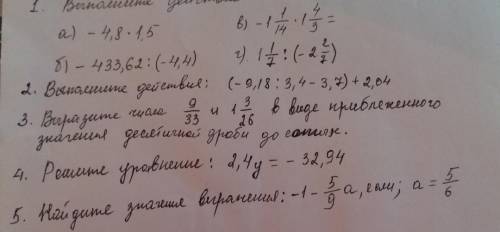 1. Выполните действия
а) - 4,8 · 1,5 в) - 1 1/14 · 1 4/5 =
б) - 433,62 : (-4,4) г) 1 1/7 : (- 2 2/7)
2. Выполните действия: (- 9,18 : 3,4 - 3,7) + 2,04
3. Выразите числа 9/33 и 1 3/26 в виде приближенного
значения десятичной дроби до сотых.
4. Решите уравнение: 2,4у = - 32,94
5. Найдите значение выражения: -1 - 5/9 а, если; а = 5/6